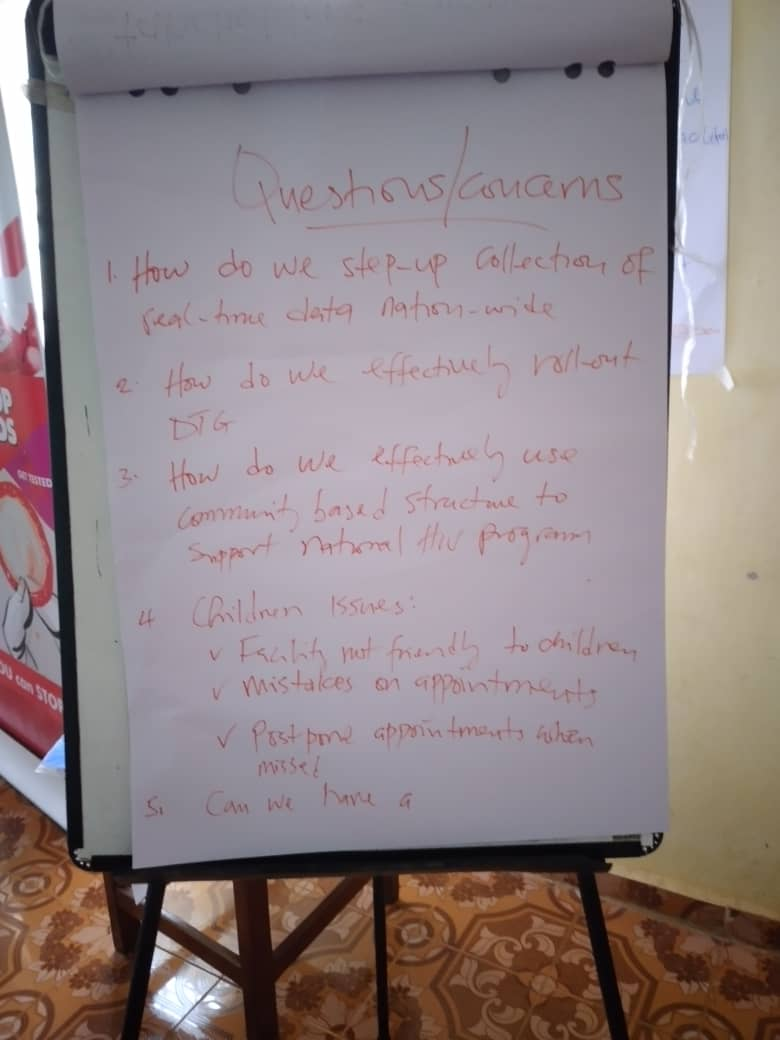 Questions/concerns
1. How do we step-up collection of
real-time data nation-wide
2. How do we effectively roll-out
DTG
3. How do we effectively use
community based structure to
support national HIV program
4 Children issues:
v Facility not friendly to children
v mistakes on appointments
v Postpone appointments when
missed
5. Can we have a
GET TESTED
YOU can STOP